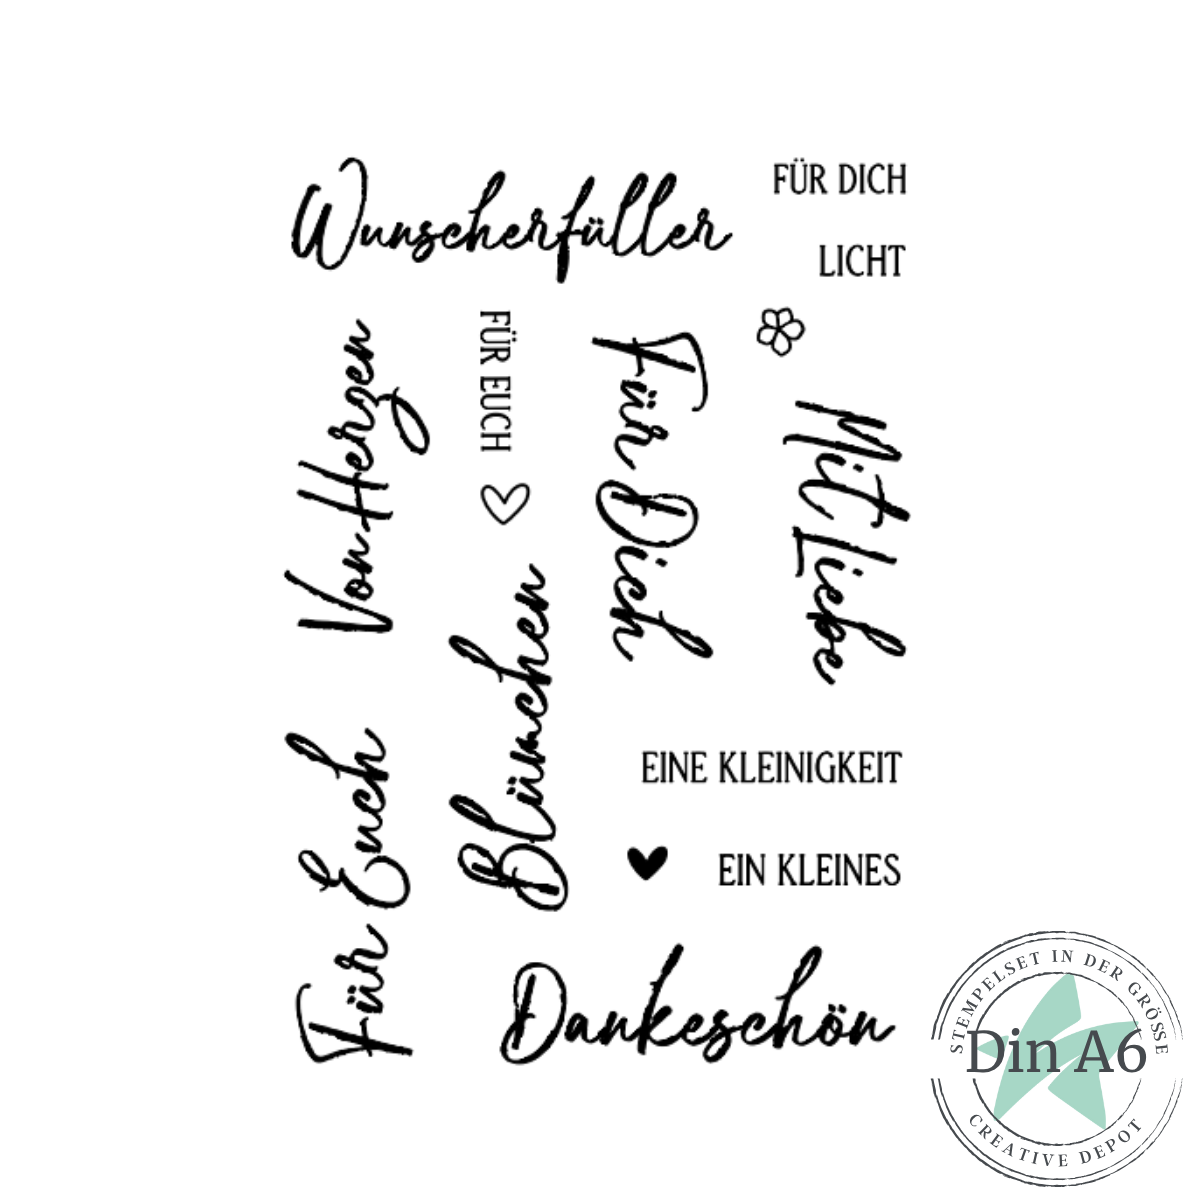 Wunscherfüller
FÜR DICH
LICHT
Von Herzen
FÜR EUCH
Für Dich
Mit Liebe
Blümchen
Für Euch
EINE KLEINIGKEIT
EIN KLEINES
Dankeschön
STEMPELSET IN DER GRÖSSE
Din A6
CREATIVE DEPOT